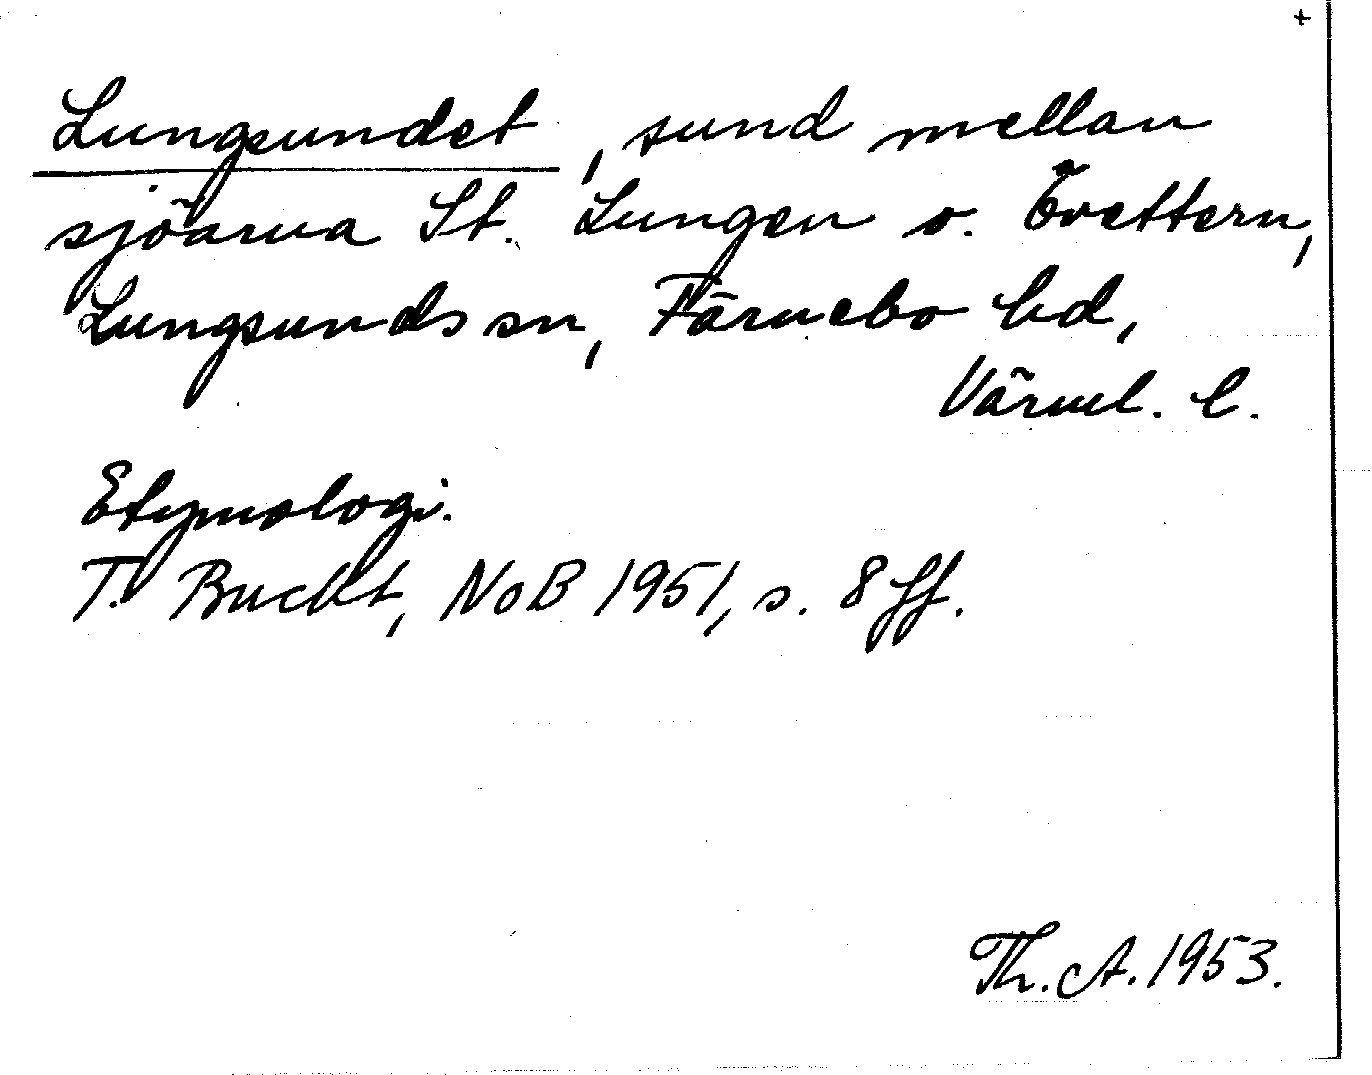 +
Lungsundet, sund mellan
sjöarna St. Lungen o. Övettern,
Lungsunds sn, Färnebo hd,
Värml. l.
Etymologi.
T. Bucht, NoB 1951, s. 8 ff.
Th. A. 1953.